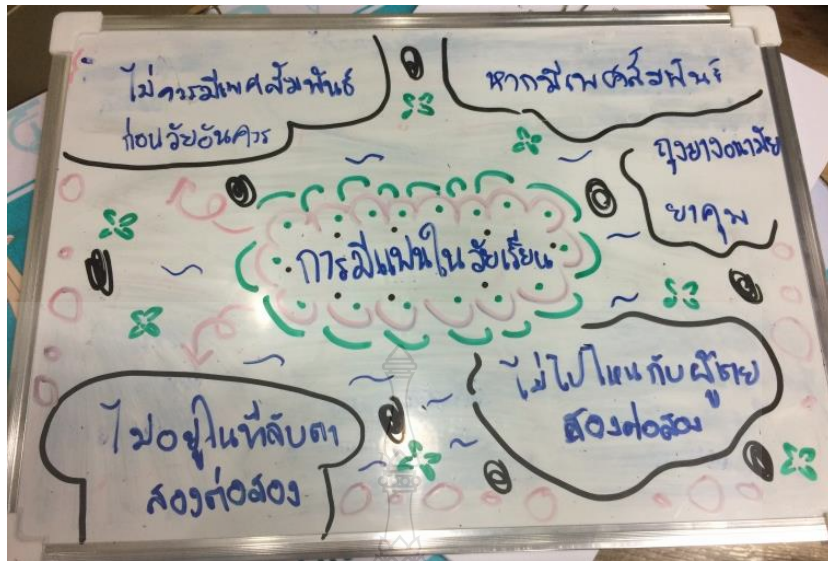 ไม่ควรมีเพศสัมพันธ์
ก่อนวัยอันควร
หากมีเพศสัมพันธ์
ถุงยางอนามัย
ยาคุม
การมีแฟนในวัยเรียน
ไม่อยู่ในที่ลับตา
สองต่อสอง
ไม่ไปไหนกับผู้ชาย
สองต่อสอง